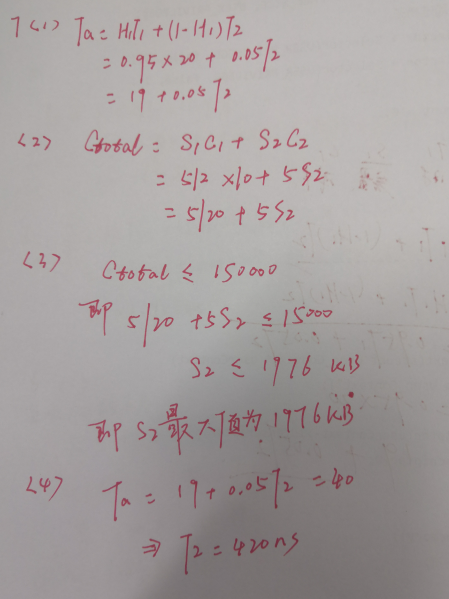 7 (1) Ta = H1T1 + (1-H1)T2
= 0.95 × 20 + 0.05T2
= 19 + 0.05T2
(2) Ctotal = S1C1 + S2C2
= 512 × 10 + 5S2
= 5120 + 5S2
(3) Ctotal ≤ 150000
即 5120 + 5S2 ≤ 15000
S2 ≤ 1976 KB
即 S2 最大值为 1976KB
(4) Ta = 19 + 0.05T2 = 40
⇒ T2 = 420ns